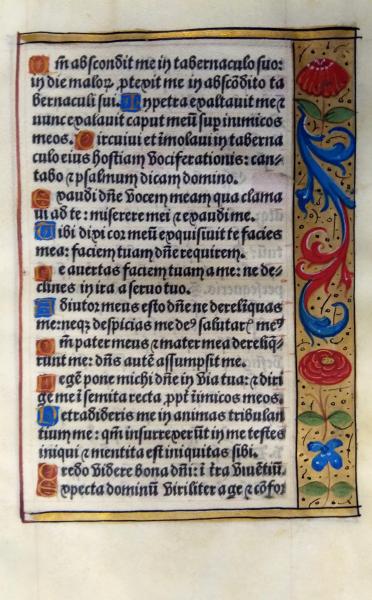 Qm̄ abscondit me in tabernaculo suo:
in die maloꝝ ꝓtexit me in abscōdito ta
bernaculi sui. In petra exaltauit me ⁊
nunc exaltauit caput meū sup inimicos
meos. Circuiui et imolaui in taberna
culo eius hostiam vociferationis: can⸗
tabo ⁊ psalmum dicam domino.
Exaudi dn̄e vocem meam qua clama
ui ad te: miserere mei ⁊ exaudi me.
Tibi dixi cor meū exquisiuit te facies
mea: faciem tuam dn̄e requirem.
Ne auertas faciem tuam a me: ne de⸗
clines in ira a seruo tuo.
Adiutor meus esto dn̄e ne derelīquas
me: neqꝫ despicias me deꝰ salutarꝭ meꝰ
Qm̄ pater meus ⁊ mater mea dereliq̄⸗
runt me: dn̄s autē assumpsit me.
Legē pone michi dn̄e in via tua: ⁊ diri
ge me ī semita recta ꝓpt̄ īimicos meos.
Ne tradideris me in animas tribulan
tium me: qm̄ insurrexerūt in me testes
iniqui ⁊ mentita est iniquitas sibi.
Credo videre bona dn̄i: ī t̄ra viuētiū.
Expecta dominū viriliter age ⁊ cōfor